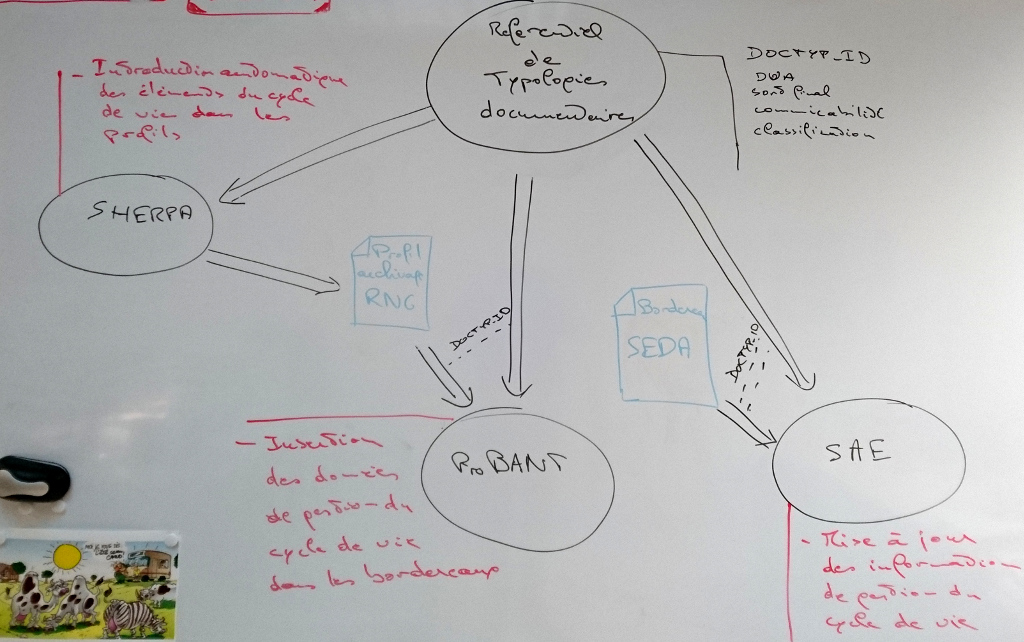 Referentiel
de
Typologies
documentaires
DOCTYP_ID
DUA
sort final
communicabilité
classification
- Introduction automatique
des éléments du cycle
de vie dans les
profils
SHERPA
Profil
archivage
RNG
DOCTYP_ID
Bordereau
SEDA
DOCTYP_ID
- Insertion
des données
de gestion du
cycle de vie
dans les bordereaux
ProBANT
SAE
- Mise à jour
des informations
de gestion du
cycle de vie